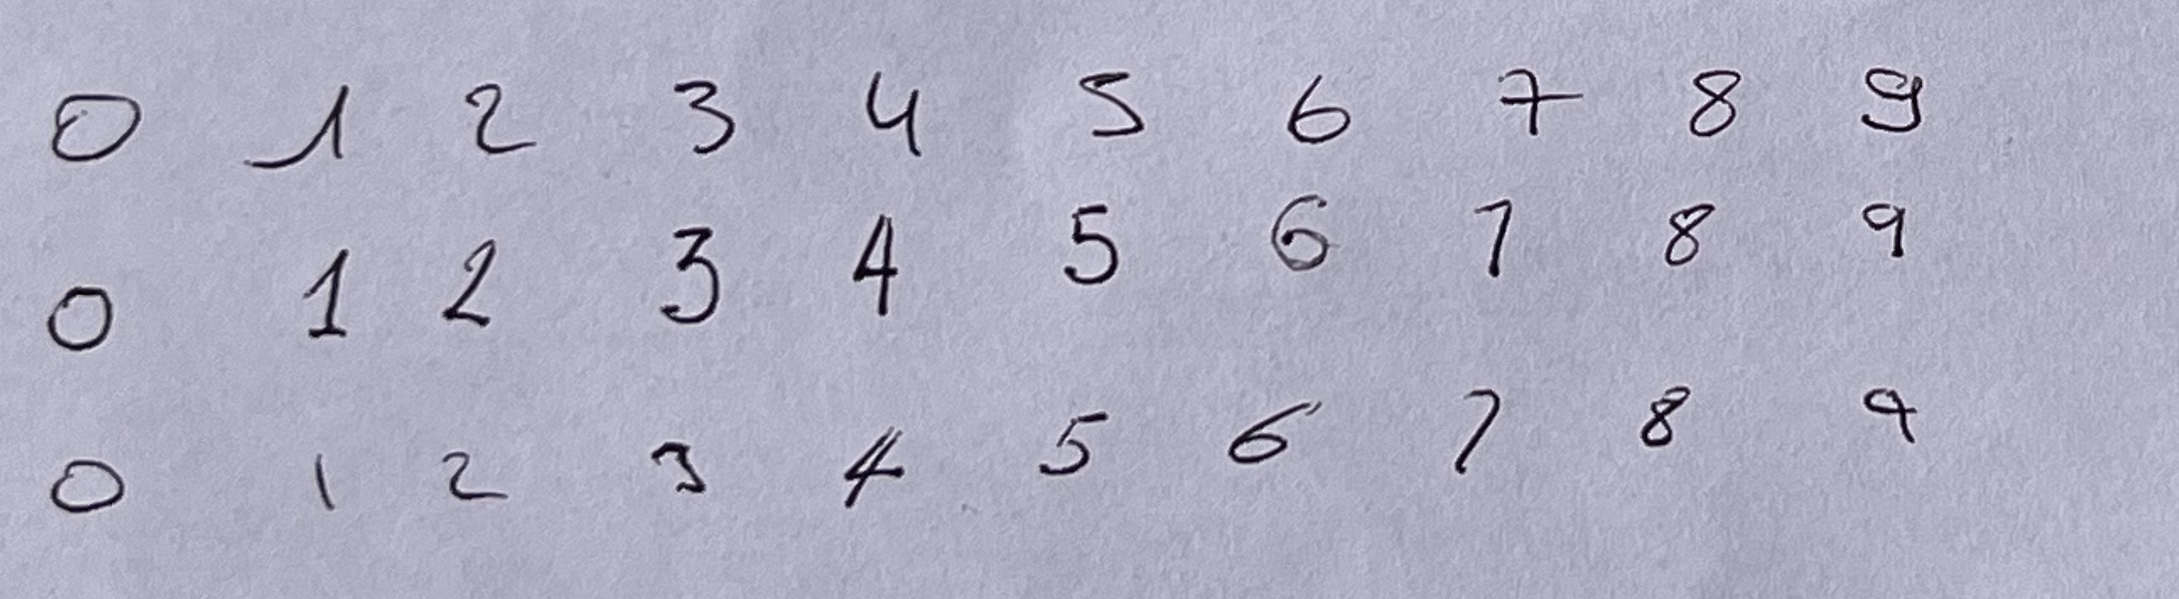 0 1 2 3 4 5 6 7 8 9
0 1 2 3 4 5 6 7 8 9
0 1 2 3 4 5 6 7 8 9